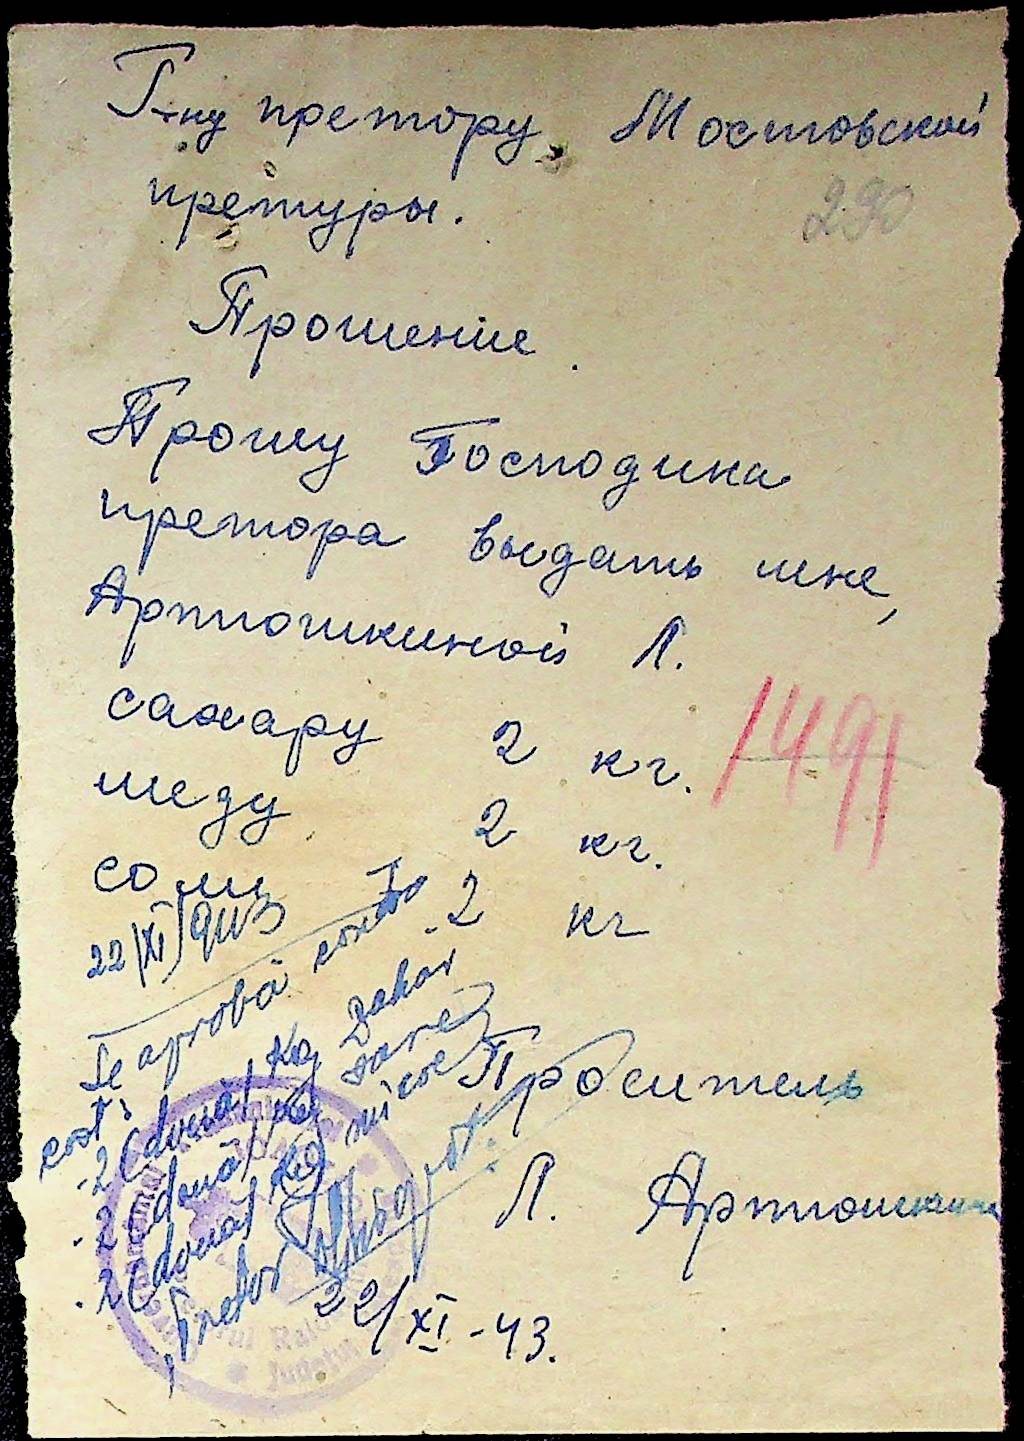 Г-ну претору Мостовской
претуры.
290
Прошеніе
Прошу Господина
претора выдать мне,
Артюшкиной Л.
сахару 2 кг.
1491
меду 2 кг.
соли 2 кг
22/XI/943
Se aprobă contra
cost:
- 2 (două) kg zahar
- 2 (două) kg sare
- 2 (două) kg miere
Pretor
Проситель
Л. Артюшкина
22/XI-43.